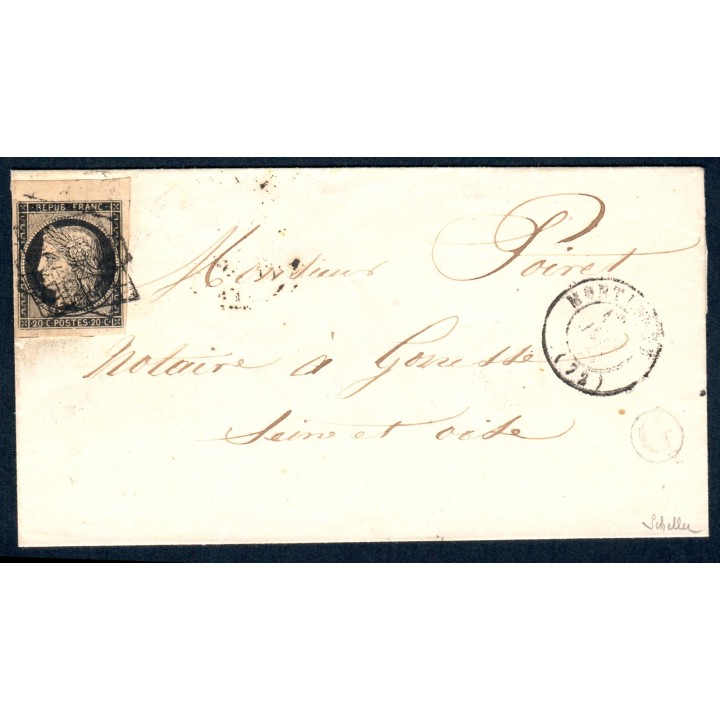 REPUB FRANC
20·C POSTES·20·C
Monsieur Poiret
Notaire à Gonesse
Seine et oise
(72)
Scheller